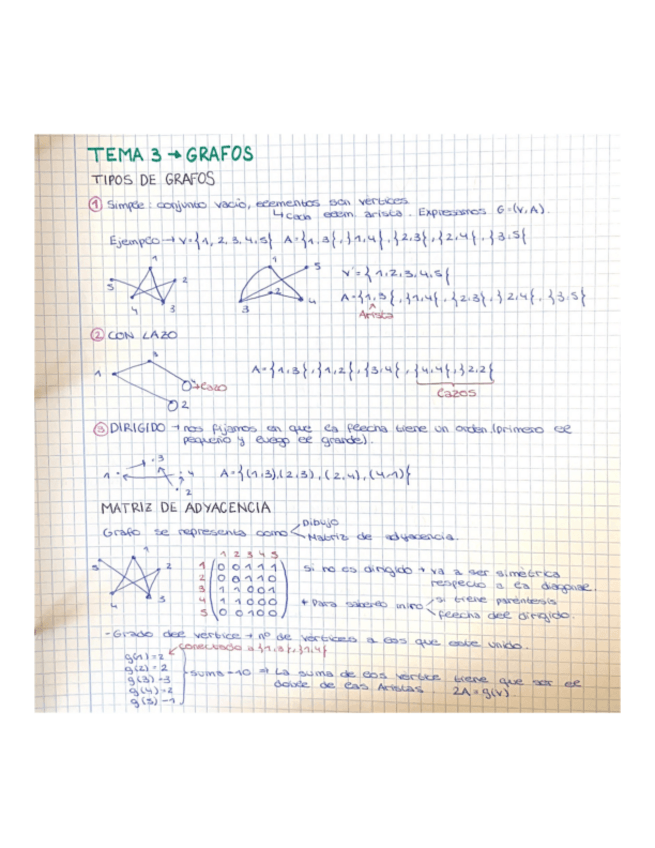 TEMA 3 → GRAFOS
TIPOS DE GRAFOS
① Simple: conjunto vacío, elementos son vértices
↳ Cada arista. Expresamos G=(V,A).
Ejemplo → V={1,2,3,4,5} A={1,3},{1,4},{2,3},{2,4},{3,5}
1
5 2
4 3
1 5
2
3 4
V={1,2,3,4,5}
A={1,3},{1,4},{2,3},{2,4},{3,5}
Arista
② CON LAZO
3
1
→ Lazo
2
A={1,3},{1,2},{3,4},{4,4},{2,2}
Lazos
③ DIRIGIDO → nos fijamos en que la flecha tiene un orden (primero el
pequeño y luego el grande).
1 3 4 2
A={(1,3),(2,3),(2,4),(4,1)}
MATRIZ DE ADYACENCIA
Grafo se representa como
Dibujo
Matriz de adyacencia.
1
5 2
4 3
1 2 3 4 5
1 0 0 1 1 1
2 0 0 1 1 0
3 1 1 0 0 1
4 1 1 0 0 0
5 0 0 1 0 0
si no es dirigido → va a ser simétrica
respecto a la diagonal.
+ Para saberlo miro
si tiene paréntesis
flecha del dirigido.
- Grado del vértice → nº de vértices a los que esté unido.
conectado a {1,3},{1,4}
g(1)=2
g(2)=2
g(3)=3
g(4)=2
g(5)=1
suma=10 ⇒ La suma de los vértice tiene que ser el
doble de las Aristas 2A=g(v)